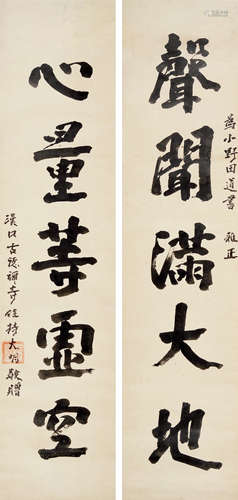 聲聞滿大地
為小野田道書 雅正
心量等虛空
漢口古德禪寺住持大明敬贈